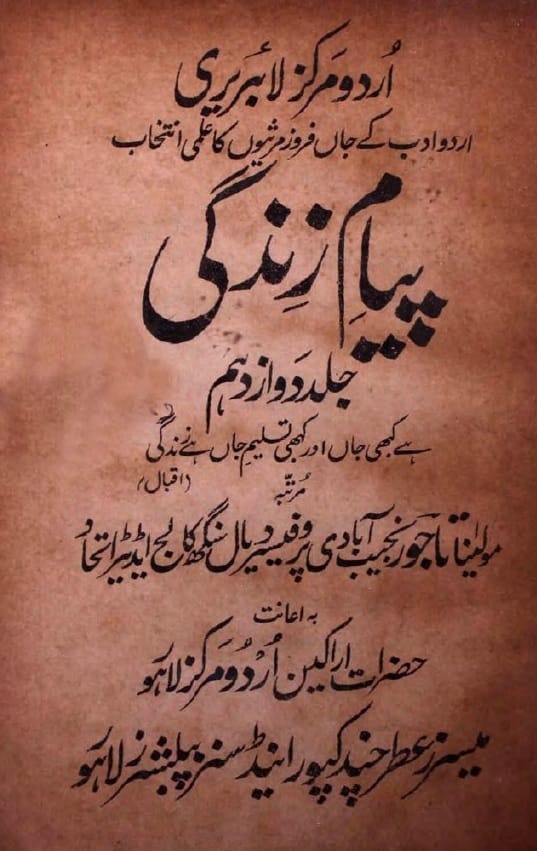 اُردو مرکز لائبریری
اردو ادب کے جاں فروز مرثیوں کا علمی انتخاب
پیامِ زِندگی
جلد دَوازدہم
ہے کبھی جاں اور کبھی تسلیمِ جاں ہے زندگی
(اقبال)
مُرتبّہ
مولیٰنا تاجور نجیب آبادی پروفیسر دیال سنگھ کالج ایڈیٹر اتحاد
بہ اعانت
حضرات اراکین اُردُو مَرکز لاہور
میسرز عطر چند کپور اینڈ سنز پبلشرز لاہور